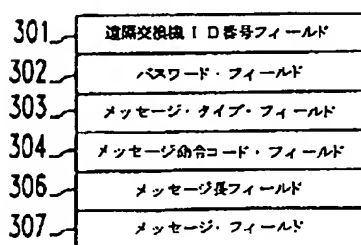 301 遠隔交換機ID番号フィールド
302 パスワード・フィールド
303 メッセージ・タイプ・フィールド
304 メッセージ命令コード・フィールド
306 メッセージ長フィールド
307 メッセージ・フィールド